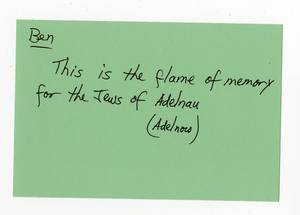 Ben
This is the flame of memory
for the Jews of Adelnau
(Adelnow)